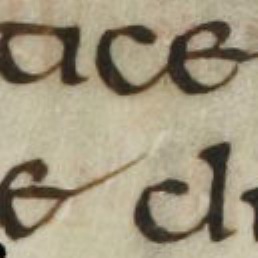 ace
e cl